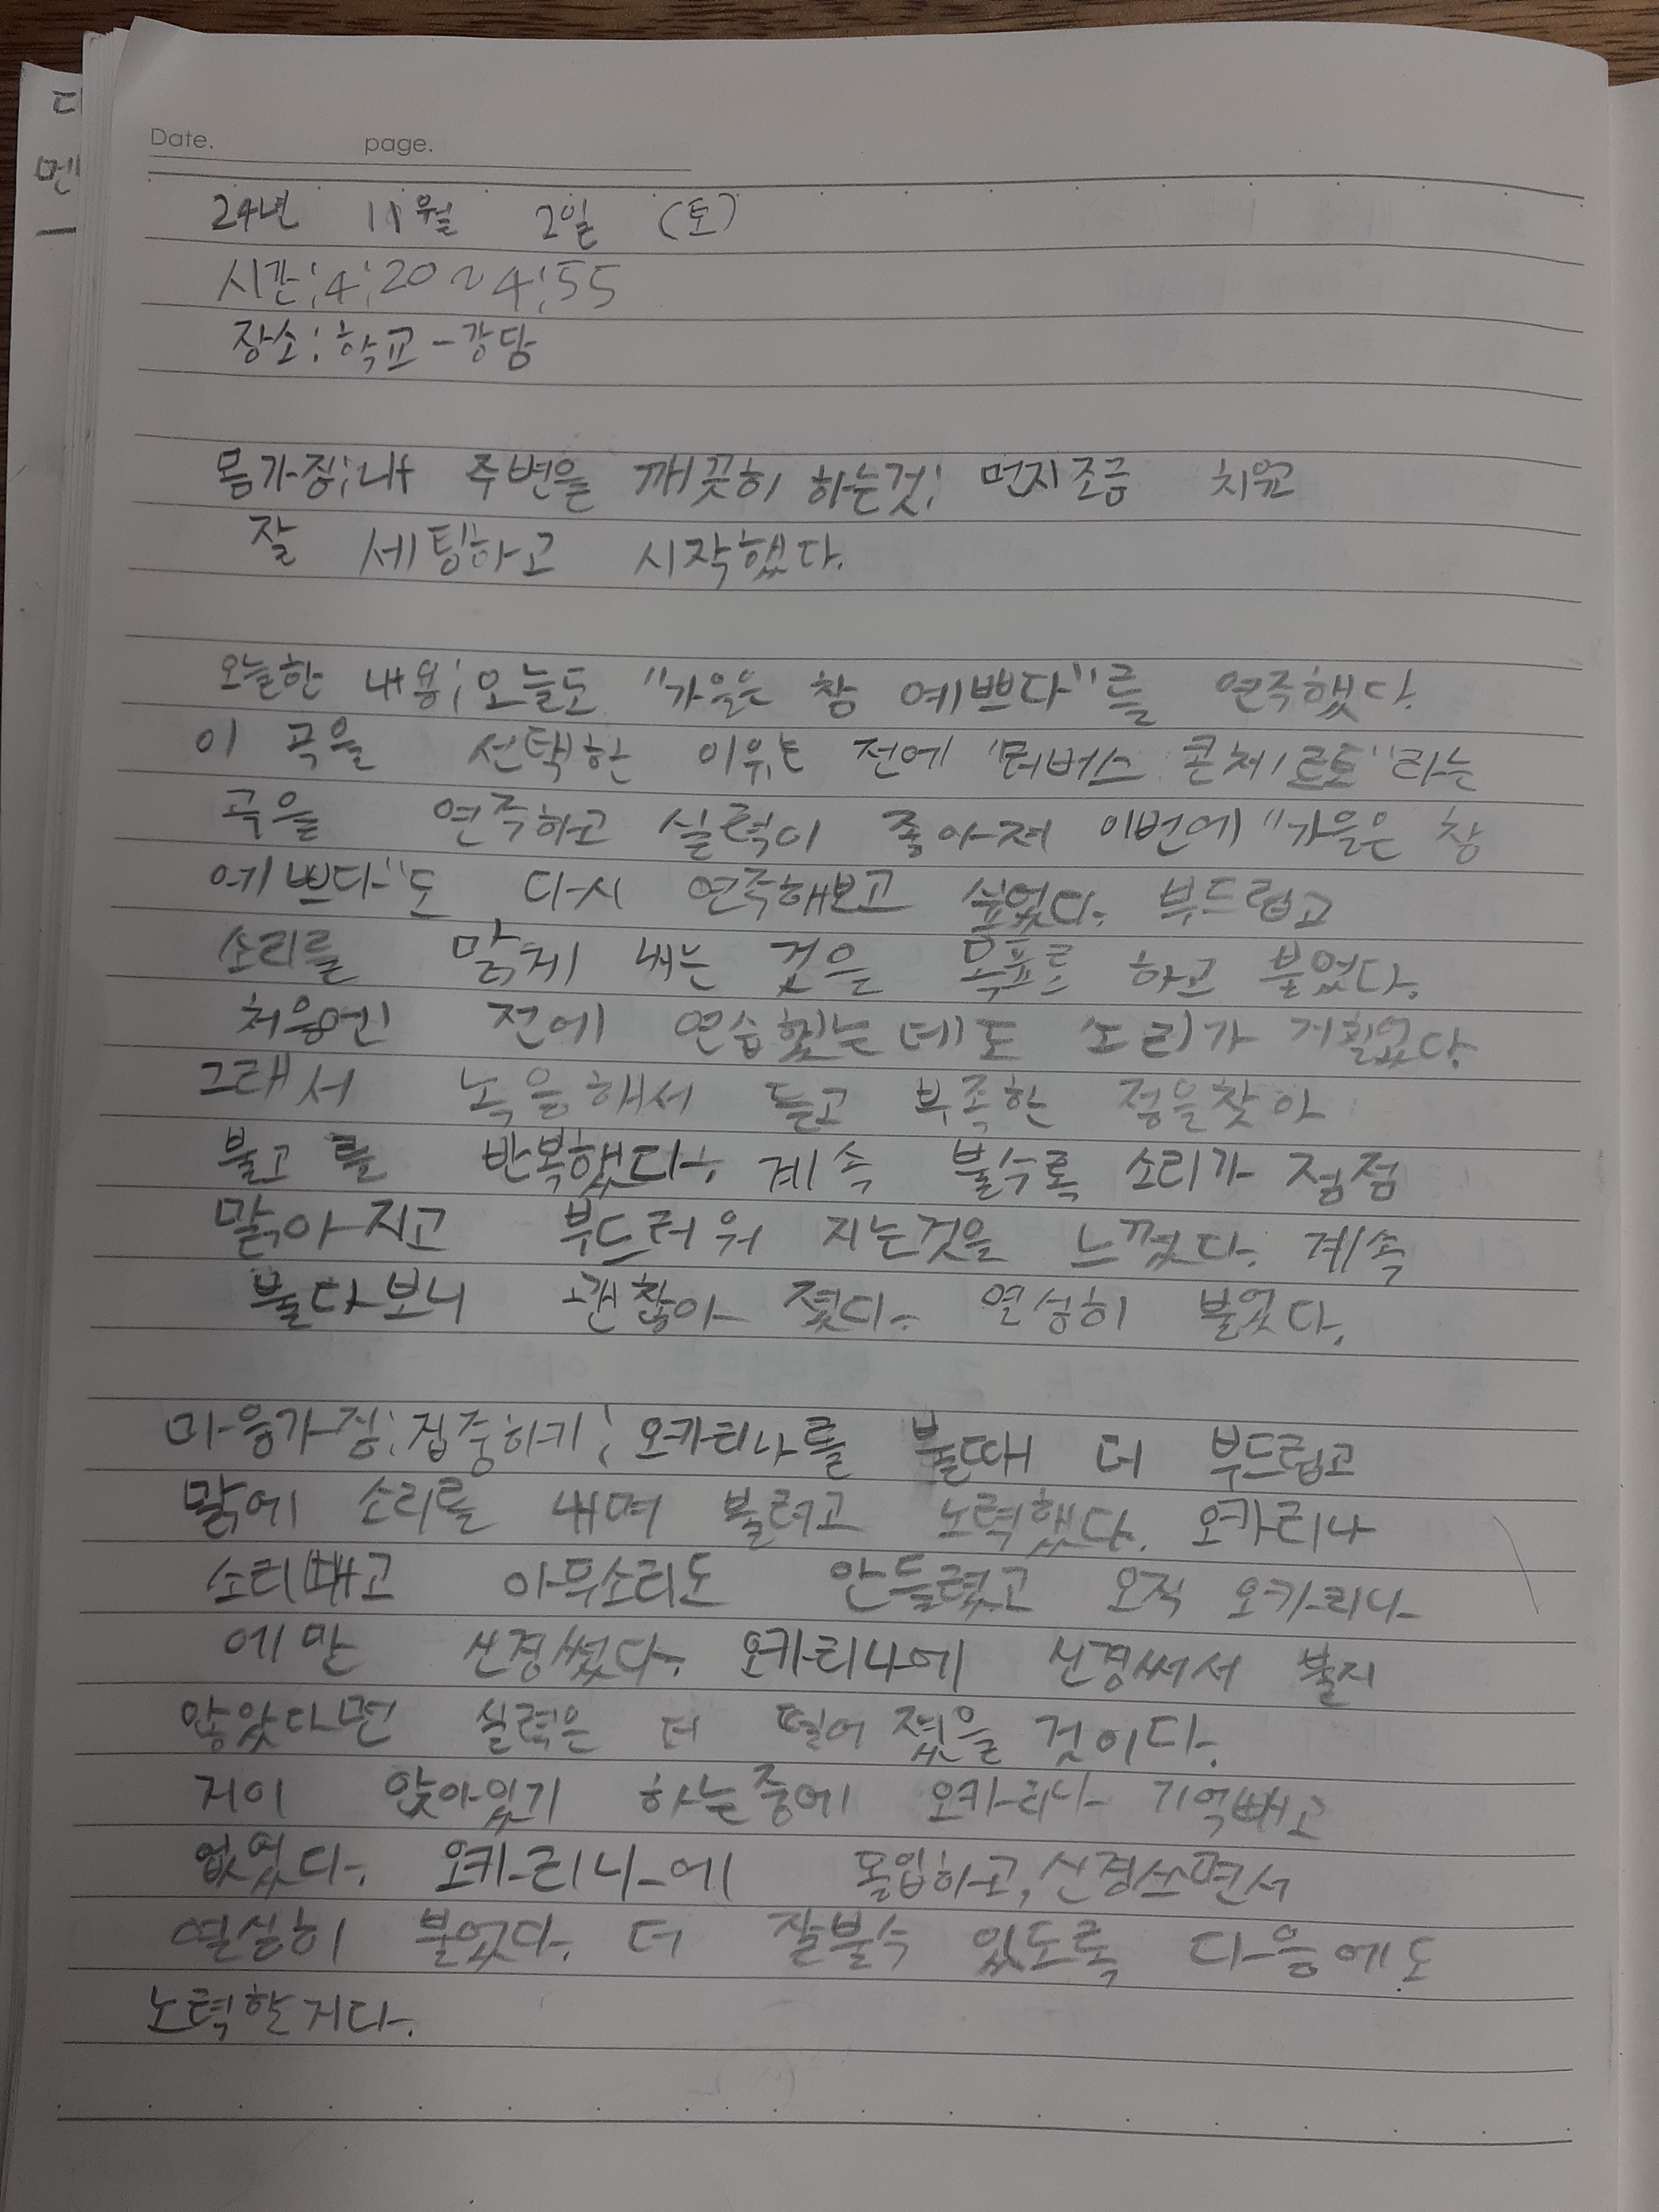 Date. page.
24년 11월 2일 (토)
시간:4:20~4:55
장소:학교-강당
몸가짐:나 주변을 깨끗히 하는것: 먼지조금 치운
잘 세팅하고 시작했다.
오늘한 내용:오늘도 "가을은 참 예쁘다"를 연주했다.
이 곡을 선택한 이유는 전에 "리버스 콘체르토"라는
곡을 연주하고 실력이 좋아져 이번에 "가을은 참
예쁘다"도 다시 연주해보고 싶었다. 부드럽고
소리를 맑게 내는 것을 목표로 하고 불었다.
처음엔 전에 연습했는데도 소리가 거칠었다.
그래서 녹음해서 듣고 부족한 점을찾아
불고를 반복했다. 계속 불수록 소리가 점점
맑아지고 부드러워 지는것을 느꼈다. 계속
불다보니 괜찮아 졌다. 열심히 불었다.
마음가짐:집중하기: 오카리나를 불때 더 부드럽고
맑에 소리를 내며 불려고 노력했다. 오카리나
소리빼고 아무소리도 안들렸고 오직 오카리나
에만 신경썼다. 오카리나에 신경써서 불지
않았다면 실력은 더 떨어 졌을 것이다.
앉아있기 하는중에 오카리나 기억빼고
없었다. 오카리나에 몰입하고,신경쓰면서
열심히 불었다. 더 잘불수 있도록 다음에도
노력할거다.